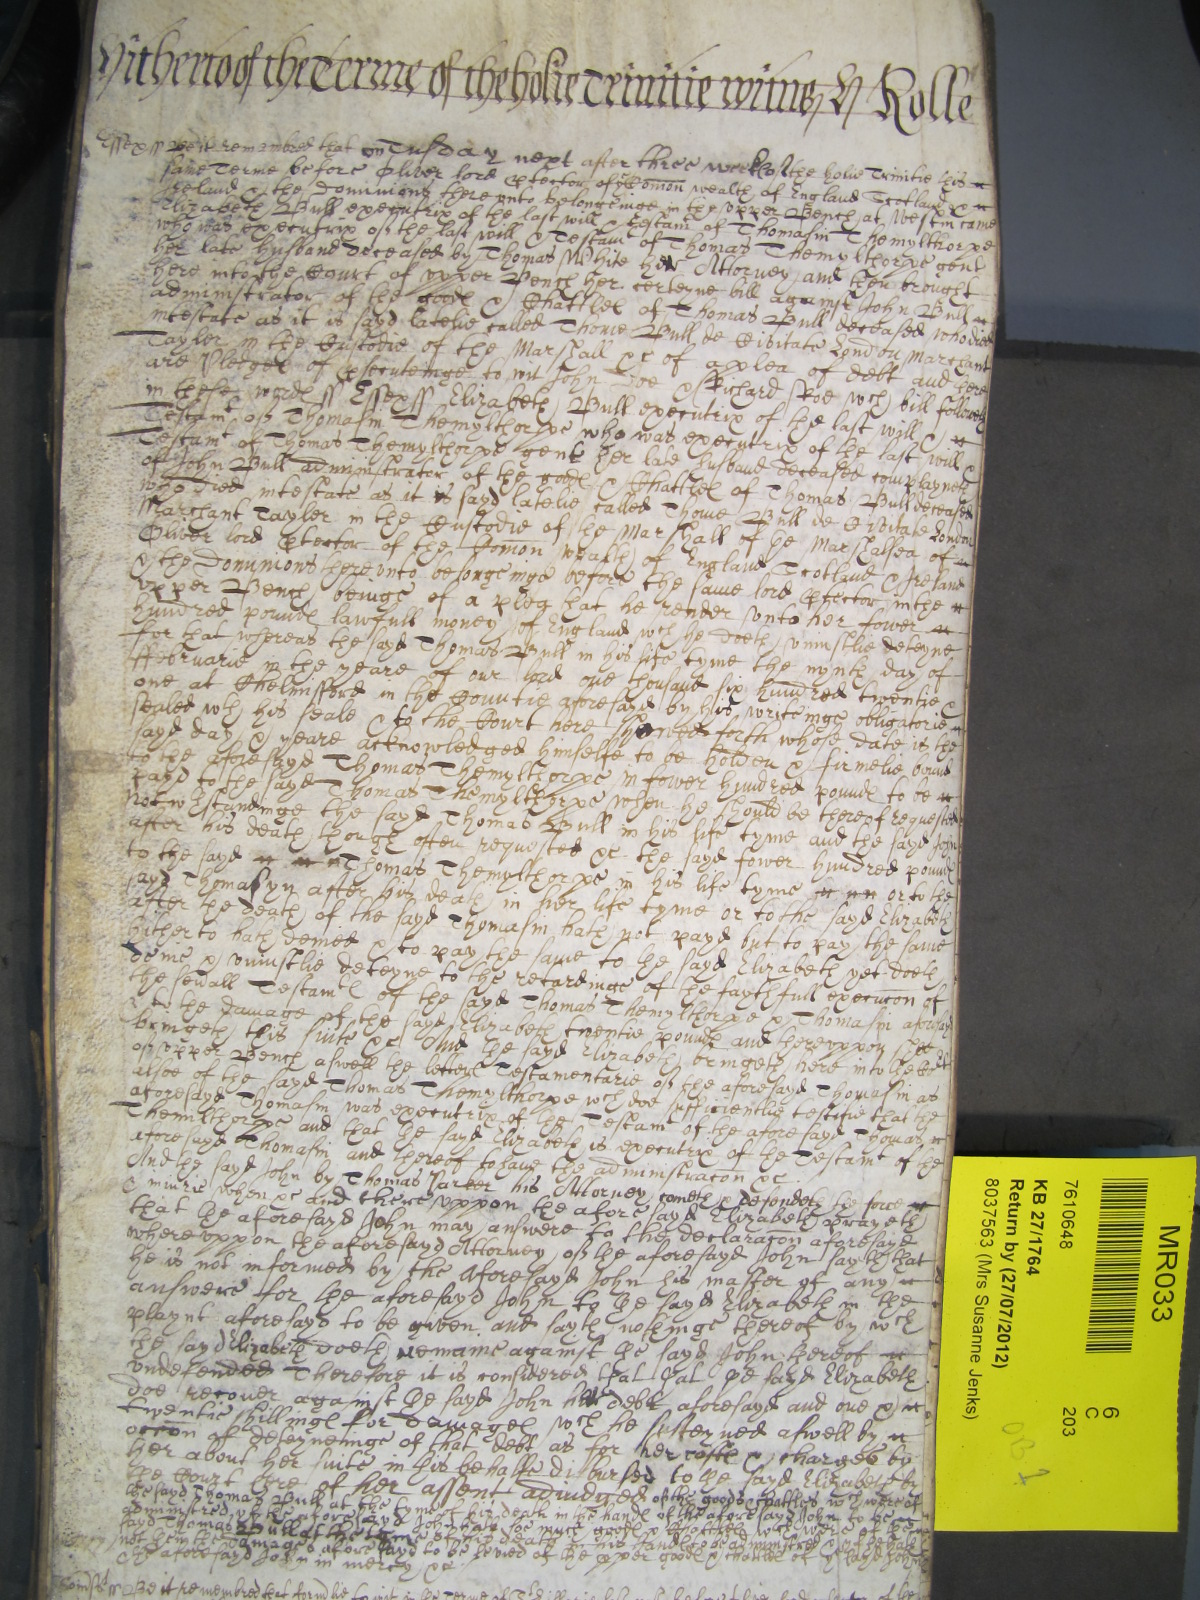 Hitherto of the Terme of the holie Trinitie witnes H Rolle
Essex ss Be it remembred that on Tusday next after three weekes of the holie Trinitie this
same Terme before Oliver lord Ptector of the Comon wealth of England Scotland &
Ireland & the Dominions thereunto belonginge in the upper Bench at Westm came
Elizabeth Bull executrix of the last will & testam of Thomasin Themylthorpe
who was executrix of the last will & Testam of Thomas Themylthorpe gent
her late husband deceased by Thomas White her Attorney and then brought
here into the Court of upper Bench her certeyne bill against John Bull
administrator of the goodes & Chattles of Thomas Bull deceased who died
intestate as it is sayd latelie called Thome Bull de Civitate London Marchant
Tayler in the Custodie of the Marshall &c of a plea of debt and here
are Pledges of psecuteinge to wit John Doe & Richard Roe wch bill followeth
in these wordes ss Essex ss Elizabeth Bull executrix of the last will &
Testamt of Thomasin Themylthorpe who was executrix of the last will &
Testamt of Thomas Themylthorpe gent her late husband deceased complayneth
of John Bull administrator of the goodes & Chattles of Thomas Bull deceased
who died intestate as it is sayd latelie called Thome Bull de Civitate London
Marchant Tayler in the Custodie of the Marshall of the Marshalsea of
Oliver lord Ptector of the Comon wealth of England Scotland & Ireland
& the Dominions thereunto belonginge before the same lord Ptector in the
upper Bench beinge of a plea that he render unto her fower
hundred poundes lawfull money of England wch he doeth uniustlie deteyne
for that whereas the sayd Thomas Bull in his life tyme the nynth day of
Februarie in the yeare of our lord one thousand six hundred twentie &
one at Chelmifford in the Countie aforesayd by his writeinge obligatorie
sealed wth his seale & to the Court here shewed forth whose date is the
sayd day & yeare acknowledged himselfe to be holden & firmelie bound
to the aforesayd Thomas Themylthorpe in fower hundred poundes to be
payd to the sayd Thomas Themylthorpe when he should be thereof requested
notwthstandinge the sayd Thomas Bull in his life tyme and the sayd John
after his death though often requested &c the sayd fower hundred poundes
to the sayd Thomas Themylthorpe in his life tyme or to the
sayd Thomasyn after his death in her life tyme or to the sayd Elizabeth
after the death of the sayd Thomasin hath not payd but to pay the same
hitherto hath denied & to pay the same to the sayd Elizabeth yet doeth
denie & uniustlie deteyne to the retardinge of the faythfull execucon of
the sevall Testamtes of the sayd Thomas Themylthorpe & Thomasin aforesayd
& to the damage of the sayd Elizabeth twentie poundes and thereuppon shee
bringeth this suite &c And the sayd Elizabeth bringeth here into the Court
of upper Bench aswell the letters Testamentarie of the aforesayd Thomasin as
alsoe of the sayd Thomas Themylthorpe wch doe sufficientlie testifie that the
aforesayd Thomasin was executrix of the Testam of the aforesayd Thomas
Themilthorpe and that the sayd Elizabeth is executrix of the Testamt of the
aforesayd Thomasin and thereof to have the administracon &c
And the sayd John by Thomas Parker his Attorney cometh & defendeth the force
& iniurie when &c and thereuppon the aforesayd Elizabeth prayeth
that the aforesayd John may answere to the declaracon aforesayd
whereuppon the aforesayd Attorney of the aforesayd John sayth that
he is not informed by the aforesayd John his master of any
answere for the aforesayd John to the sayd Elizabeth in the
playnt aforesayd to be given and sayth nothinge thereof by wch
the sayd Elizabeth doeth remaine against the sayd John thereof
undefended Therefore it is considered that the sayd Elizabeth
doe recover against the sayd John her debt aforesayd and one &
twentie shillinges for damages wch he susteyned aswell by
occon of deteyneinge of that debt as for her costes & charges by
her about her suite in this behalfe disbursed to the sayd Elizabeth by
the Court here of her assent adiudged of the goodes & chattles wch were of
the sayd Thomas Bull at the tyme of his death in the handes of the aforesayd John to be
administred yf the aforesayd John have soe much goodes & chattles wch were of the
sayd Thomas Bull at the tyme of his death in his handes to be administred & yf he hath
not then the damages aforesayd to be levied of the pper goodes & chattles of the sayd John
& the aforesayd John in mercy &c
Be it remembred that
MR033
6
C
7610648
203
KB 27/1764
Return by (27/07/2012)
8037563 (Mrs Susanne Jenks)